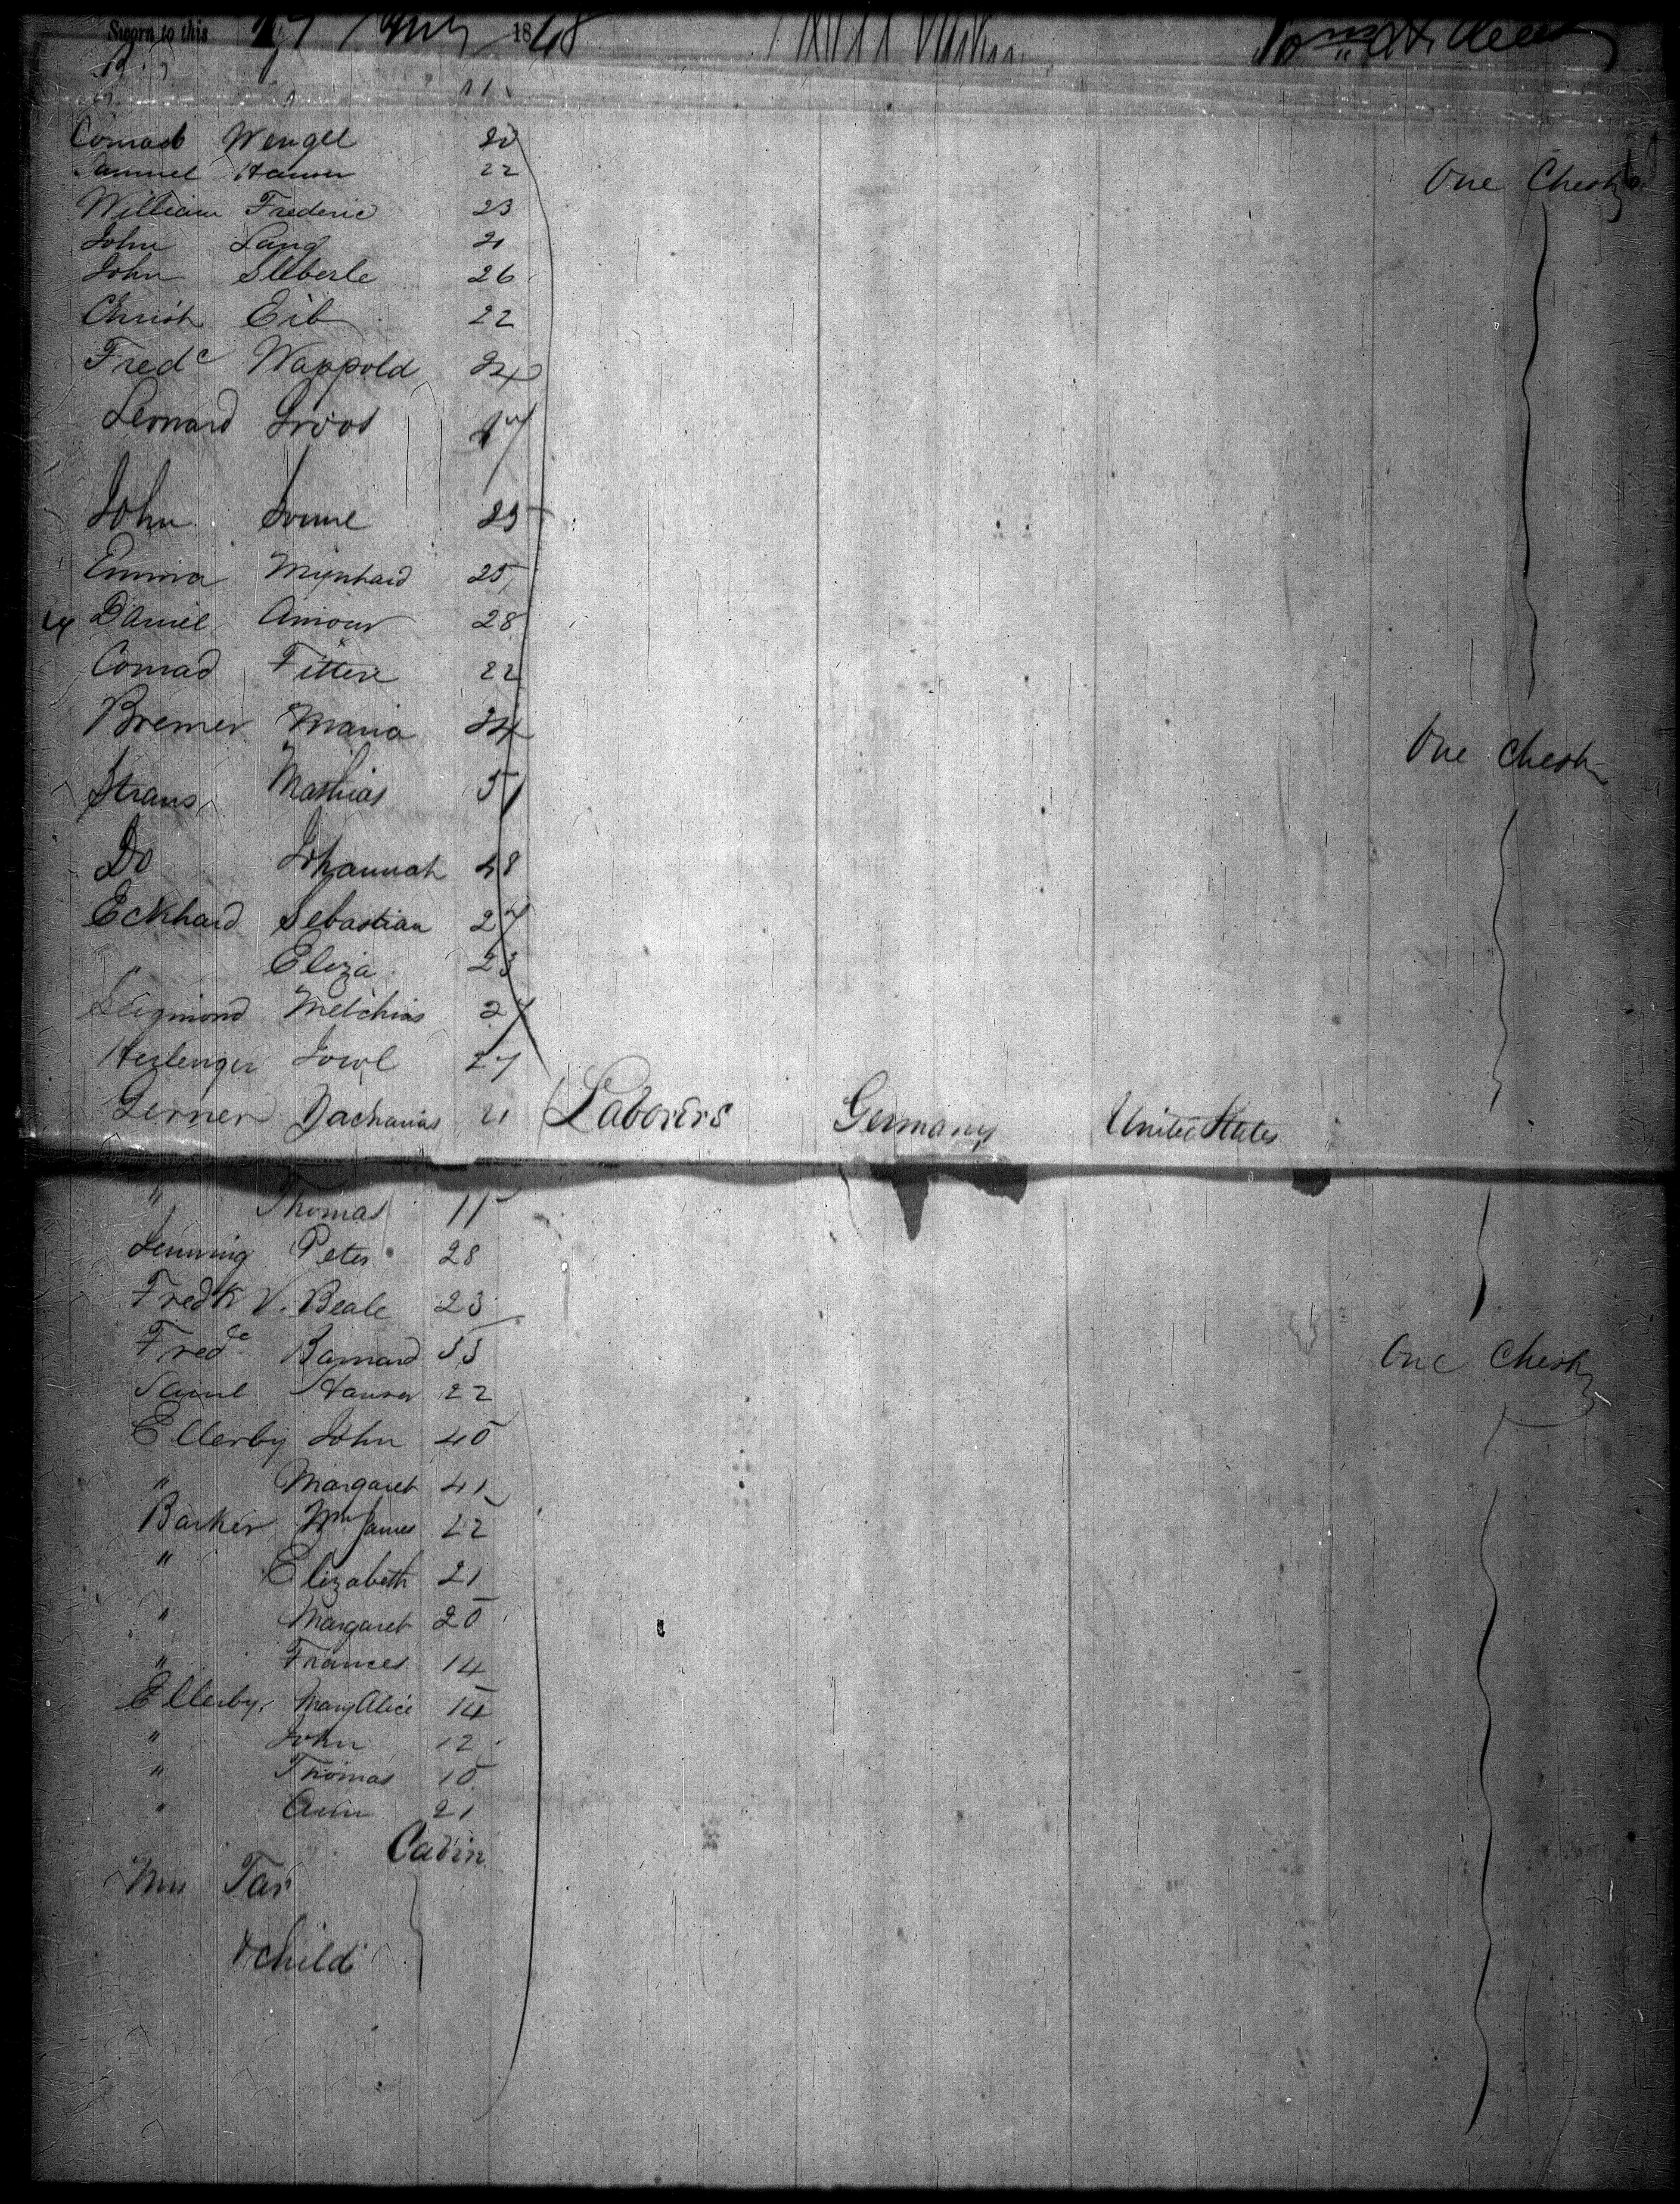 Sworn to this 1848
Conrad Wengel 20
Samuel Hauser 22 One Chest
William Frederic 23
John Lang 21
John Sleberle 26
Christ Eib 22
Fredc Wappold 24
Leonard Groos 17
John 25
Emma Mynhard 25
Daniel Amour 28
Conrad Fittere 22
Bremer Maria 24 One Chest
Straus Mathias 51
Do Johannah 48
Eckhard Sebastian 27
" Eliza 23
Seigmond Melchior 27
27
Gerner Zacharias 21 Laborers Germany United States
" Thomas 11
Peter 28
Fredk V. Beale 23
Fredc Barnard 55 One Chest
Saml Hauser 22
Ellerby John 40
" Margaret 41
Barker Wm James 22
" Elizabeth 21
" Margaret 20
" Frances 14
Ellerby, Mary Alice 14
" John 12
" Thomas 10
" Ann 21
Cabin
Mrs Tar
& child